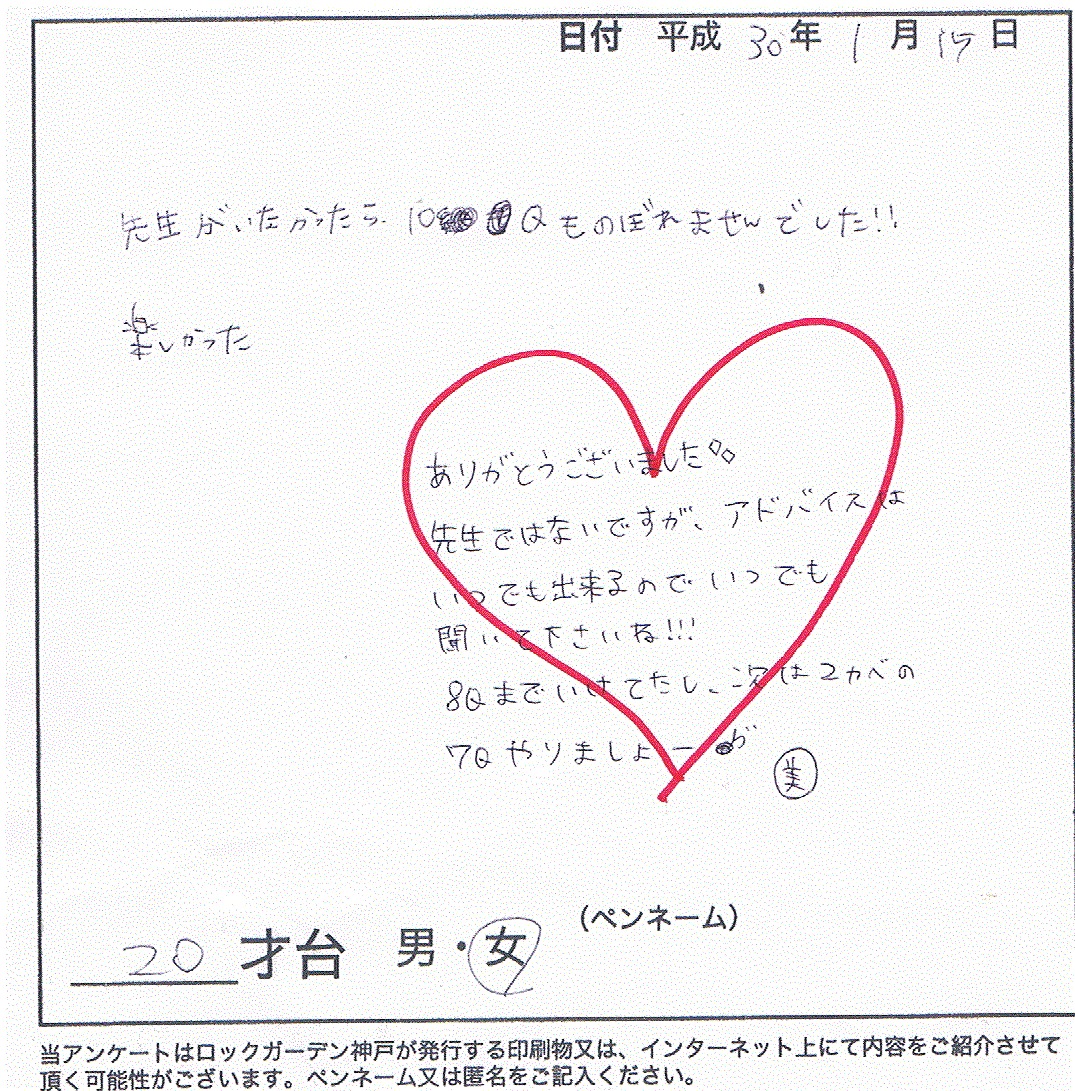 日付 平成 30年 1月 15日
先生がいたかったら 10 Qものぼれませんでした!!
楽しかった
ありがとうございました
先生ではないですが、アドバイスは
いつでも出来るのでいつでも
聞いて下さいね!!!
8Qまでいけてたし、次は2カベの
7Qやりましょー
美
20才台 男・女
(ペンネーム)
当アンケートはロックガーデン神戸が発行する印刷物又は、インターネット上にて内容をご紹介させて
頂く可能性がございます。ペンネーム又は匿名をご記入ください。